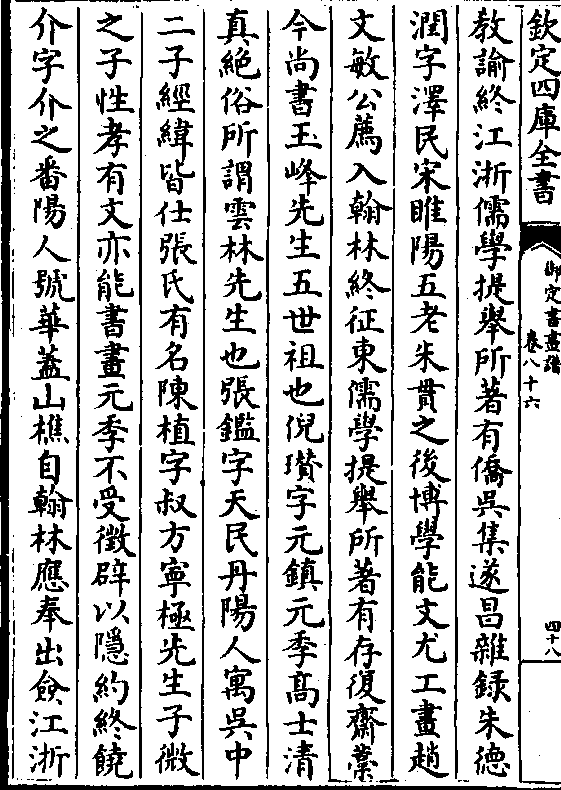 欽定四庫全書
御定書畫譜
卷八十六
四十八
教諭終江浙儒學提舉所著有僑吳集遂昌雜録朱德
潤字澤民宋睢陽五老朱貫之後博學能文尤工畫趙
文敏公薦入翰林終征東儒學提舉所著有存復齋藳
今尚書玉峰先生五世祖也倪瓚字元鎮元季髙士清
真絕俗所謂雲林先生也張鑑字天民丹陽人寓吳中
二子經緯皆仕張氏有名陳植字叔方寧極先生子微
之子性孝有文亦能書畫元季不受徵辟以隱約終饒
介字介之番陽人號華葢山樵自翰林應奉出僉江浙